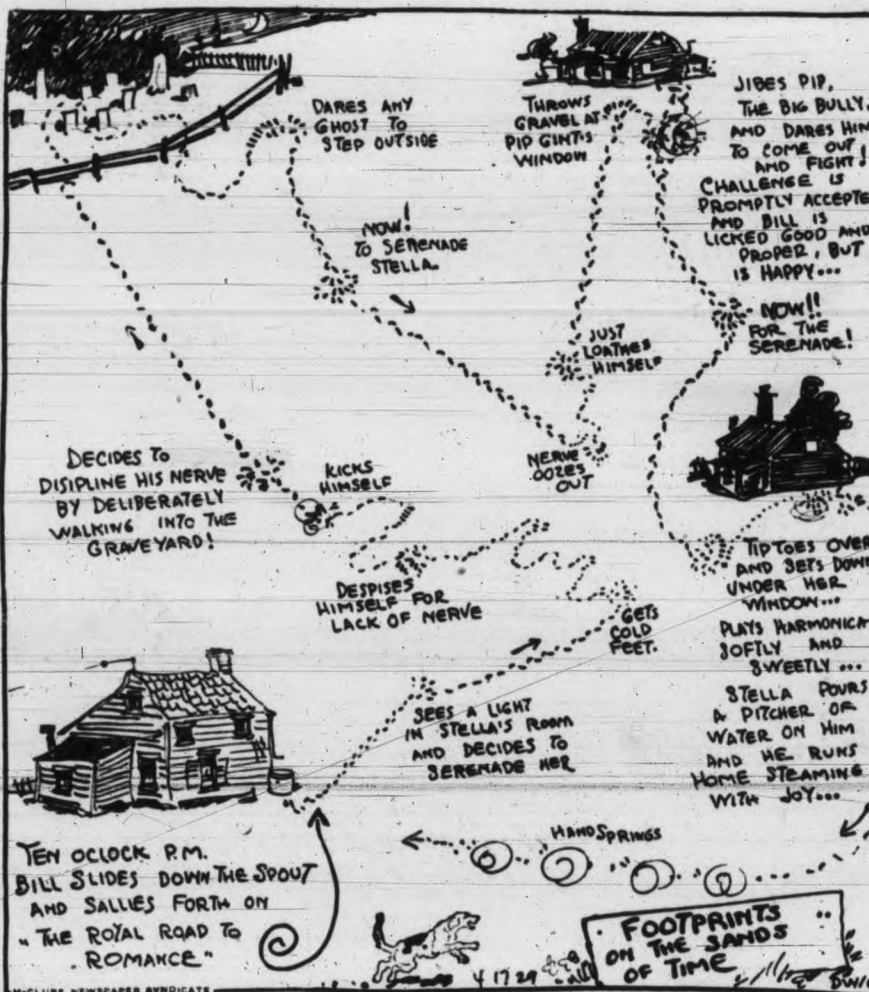 TEN OCLOCK P.M.
BILL SLIDES DOWN THE SPOUT
AND SALLIES FORTH ON
"THE ROYAL ROAD TO
ROMANCE"
SEES A LIGHT
IN STELLA'S ROOM
AND DECIDES TO
SERENADE HER
GETS
COLD
FEET.
DESPISES
HIMSELF FOR
LACK OF NERVE
KICKS
HIMSELF
DECIDES TO
DISIPLINE HIS NERVE
BY DELIBERATELY
WALKING INTO THE
GRAVEYARD!
DARES ANY
GHOST TO
STEP OUTSIDE
NOW!
TO SERENADE
STELLA.
NERVE
OOZES
OUT
JUST
LOATHES
HIMSELF
THROWS
GRAVEL AT
PIP GINT'S
WINDOW
JIBES PIP,
THE BIG BULLY,
AND DARES HIM
TO COME OUT
AND FIGHT!
CHALLENGE IS
PROMPTLY ACCEPTE
AND BILL IS
LICKED GOOD AND
PROPER, BUT
IS HAPPY...
NOW!!
FOR THE
SERENADE!
TIPTOES OVER
AND SETS DOWN
UNDER HER
WINDOW...
PLAYS HARMONICA
SOFTLY AND
SWEETLY...
STELLA POURS
A PITCHER OF
WATER ON HIM
AND HE RUNS
HOME STEAMING
WITH JOY...
HANDSPRINGS
FOOTPRINTS
ON THE SANDS
OF TIME
4 17 29
McCLURE NEWSPAPER SYNDICATE